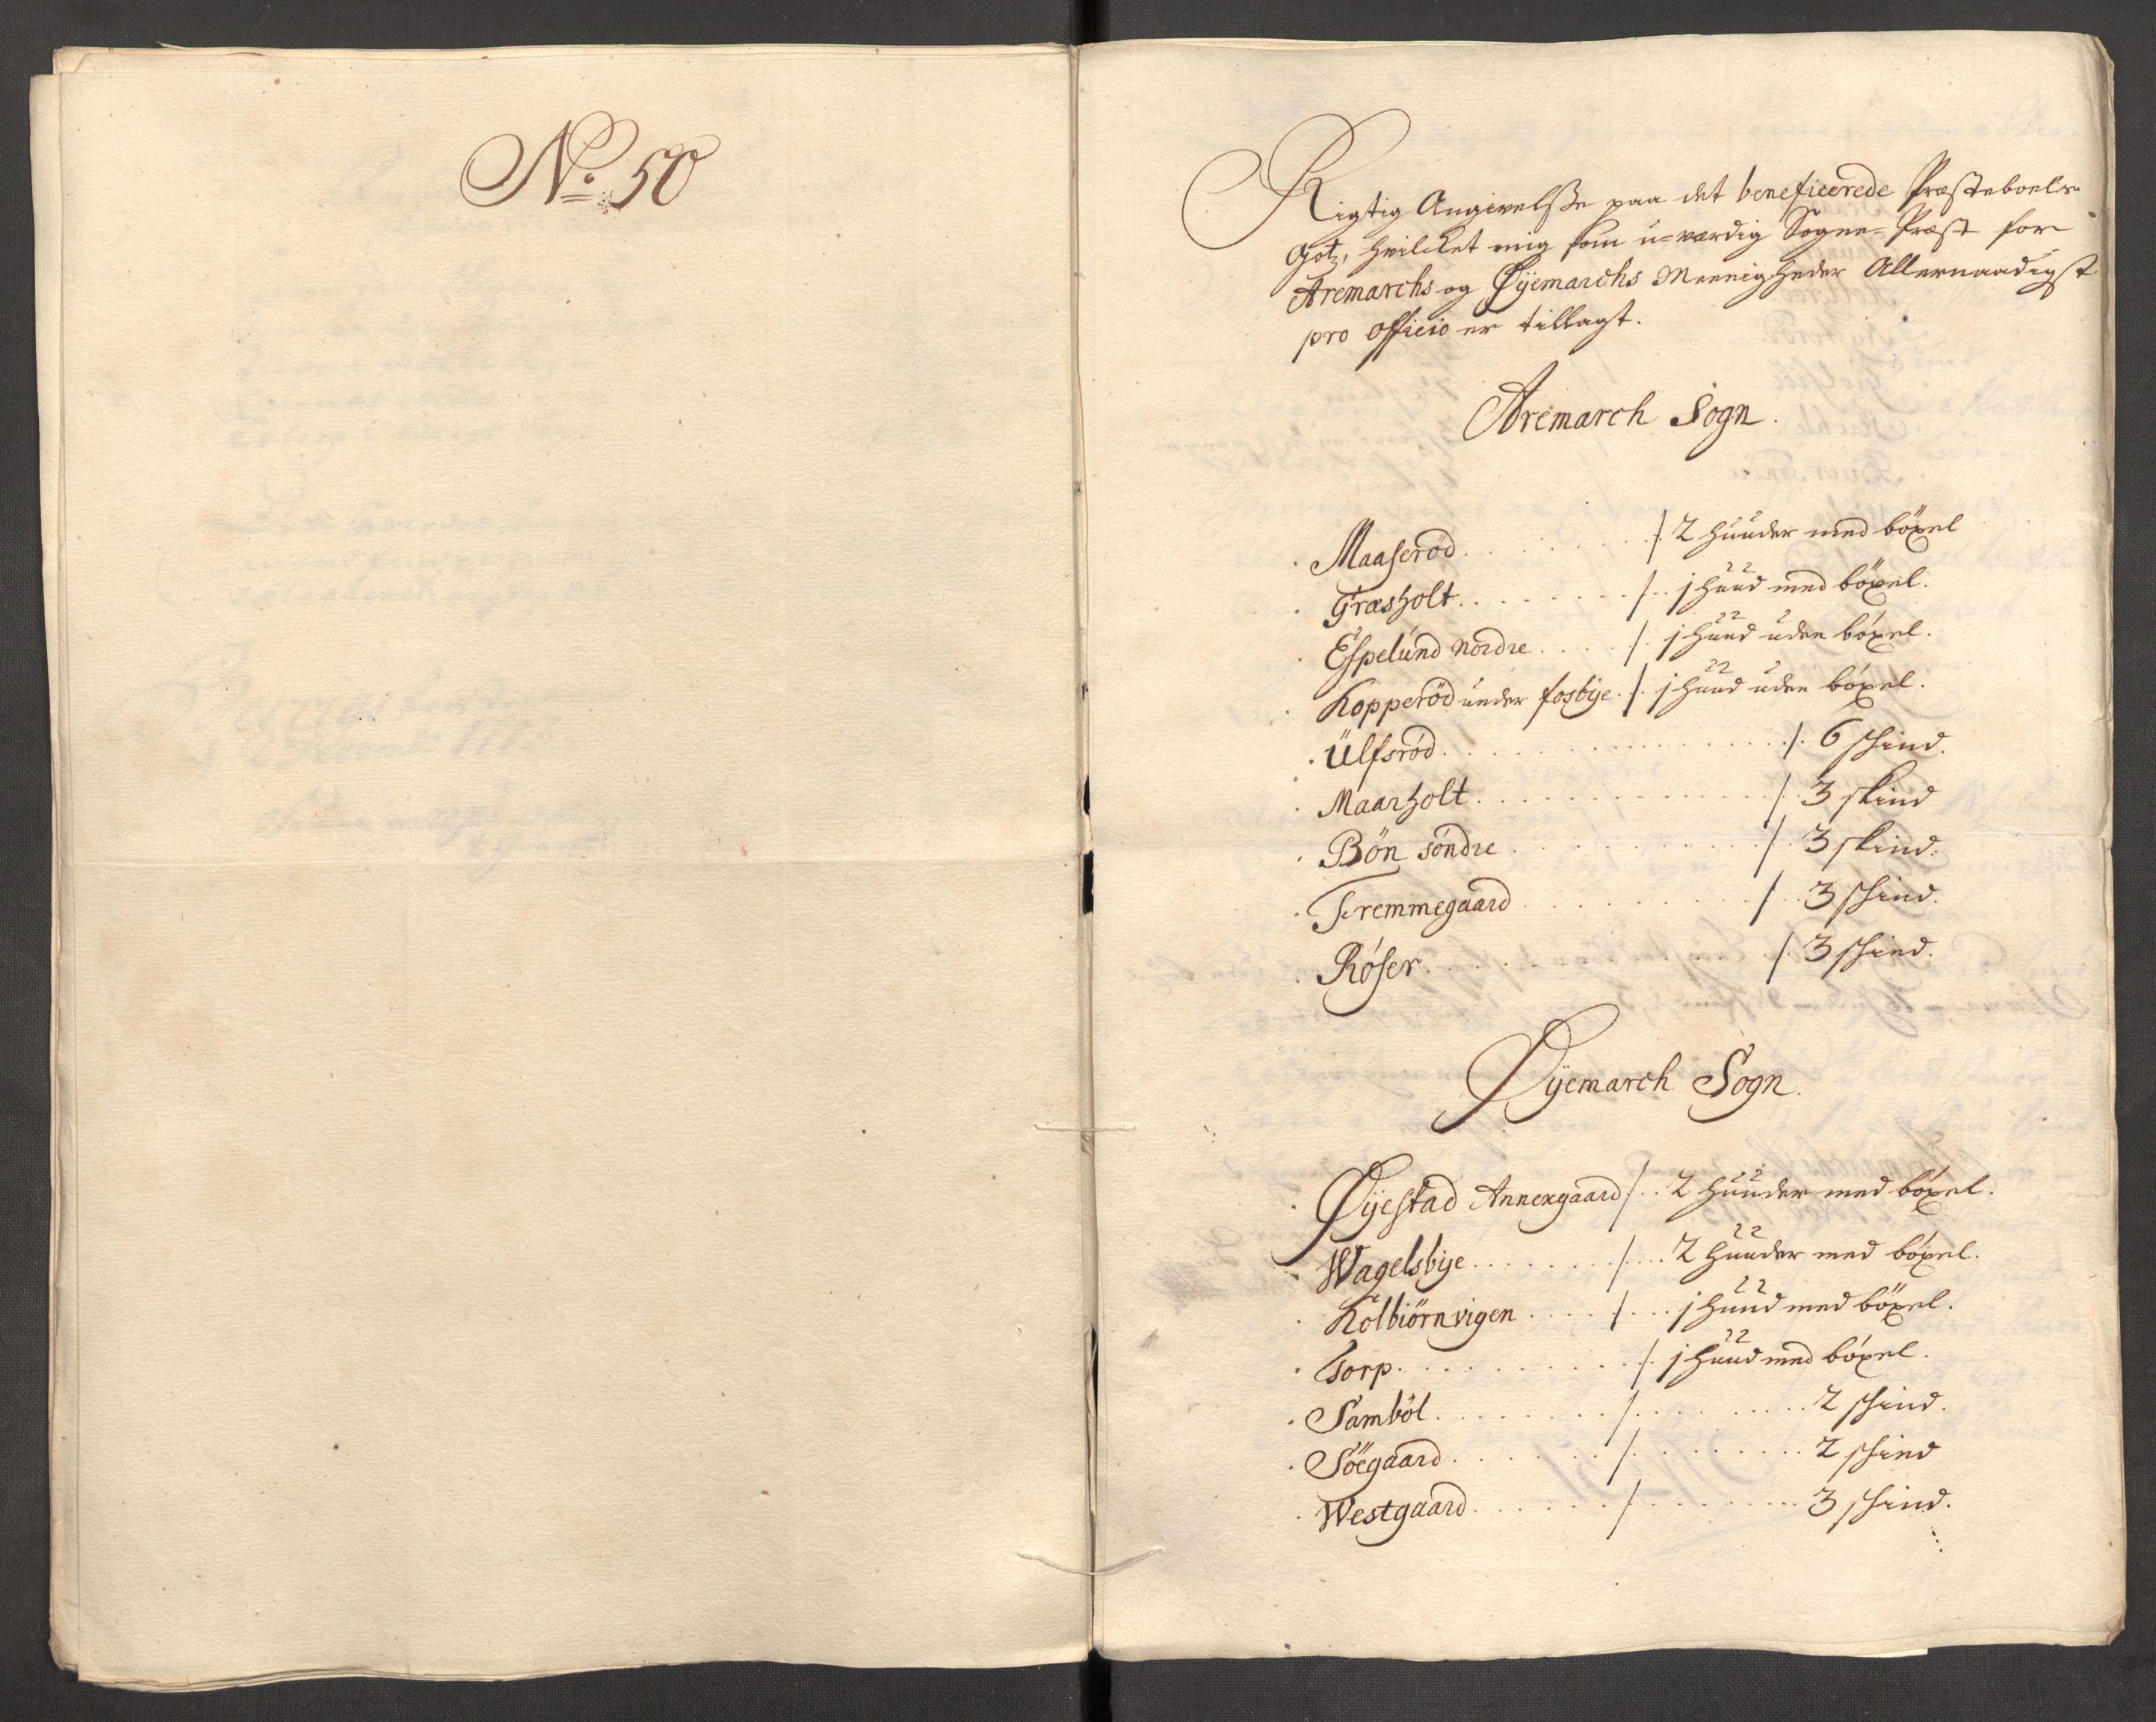 No. 50
Rigtig Angivelsse paa det beneficerede Præsteboels
Gotz, hvilcket mig som u=værdig Sogne=Præst for
Aremarchs og Øÿemarchs Meenigheder Allernaadigst
pro officio er tillagt.
Aremarch Sogn.
Maaseröd . . . . . . . /. 2 huuder med böxel
Græsholt . . . . . . . /. . j huud med böxel.
Espelund nordre . . . . /. j huud uden böxel.
Kopperöd under fosbÿe . /. j huud uden böxel.
Ulfsröd . . . . . . . . . /. 6 schind.
Maarholt . . . . . . . . . / 3 skind
Bön söndre . . . . . . . . /. 3 skind.
Fremmegaard . . . . . . . . / . 3 schind.
Röser . . . . . . . . . /. 3 schind.
Øÿemarch Sogn.
Øÿestad Annexgaard /. . 2 huuder med böxel.
Wagelsbÿe . . . . . . . /. . . 2 huuder med böxel.
Kolbiörnvigen . . . . /. . . j huud med böxel.
Torp . . . . . . . . . /. j huud med böxel.
Samböl . . . . . . . /. . . . . . . . 2 schind.
Söegaard . . . . . . /. . . . . . . . 2 schind
Westgaard . . . . . . /. . . . . . . . 3 schind.